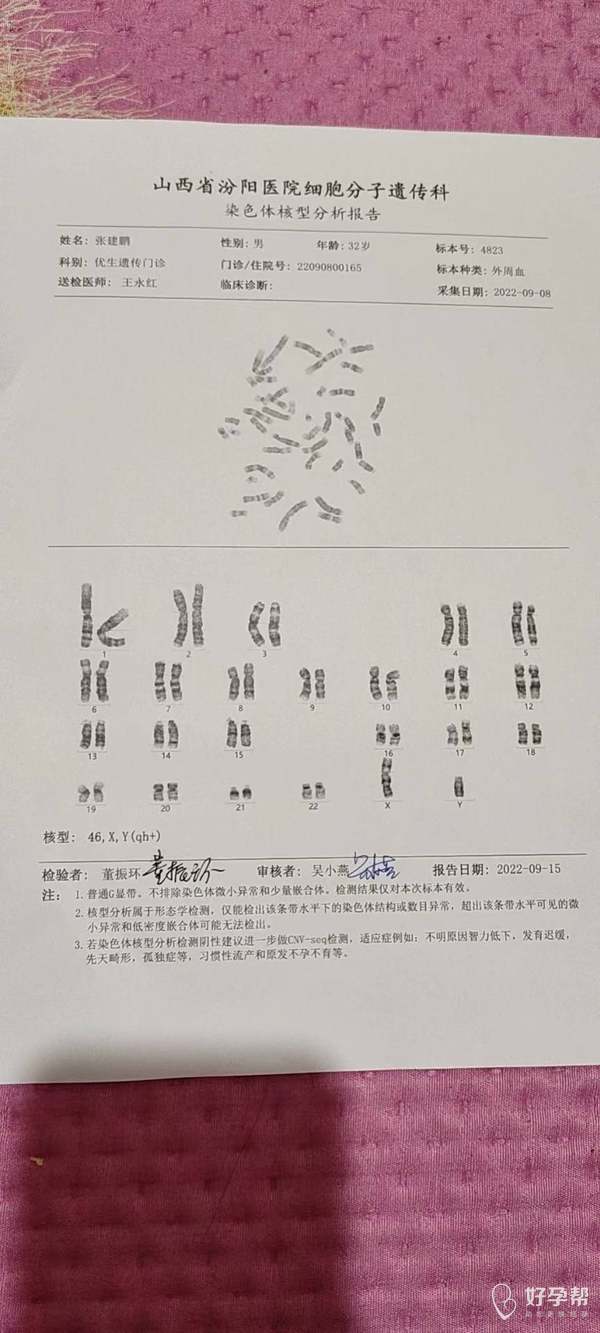 山西省汾阳医院细胞分子遗传科
染色体核型分析报告
姓名: 张建鹏 性别: 男 年龄: 32岁 标本号: 4823
科别: 优生遗传门诊 门诊/住院号: 22090800165 标本种类: 外周血
送检医师: 王永红 临床诊断: 采集日期: 2022-09-08
1 2 3 4 5
6 7 8 9 10 11 12
13 14 15 16 17 18
19 20 21 22 X Y
核型: 46,X,Y(qh+)
检验者: 董振环 董振环 审核者: 吴小燕 报告日期: 2022-09-15
注: 1.普通G显带。不排除染色体微小异常和少量嵌合体。检测结果仅对本次标本有效。
2.核型分析属于形态学检测，仅能检出该条带水平下的染色体结构或数目异常，超出该条带水平可见的微
小异常和低密度嵌合体可能无法检出。
3.若染色体核型分析检测阴性建议进一步做CNV-seq检测，适应症例如：不明原因智力低下，发育迟缓，
先天畸形，孤独症等，习惯性流产和原发不孕不育等。
好孕帮